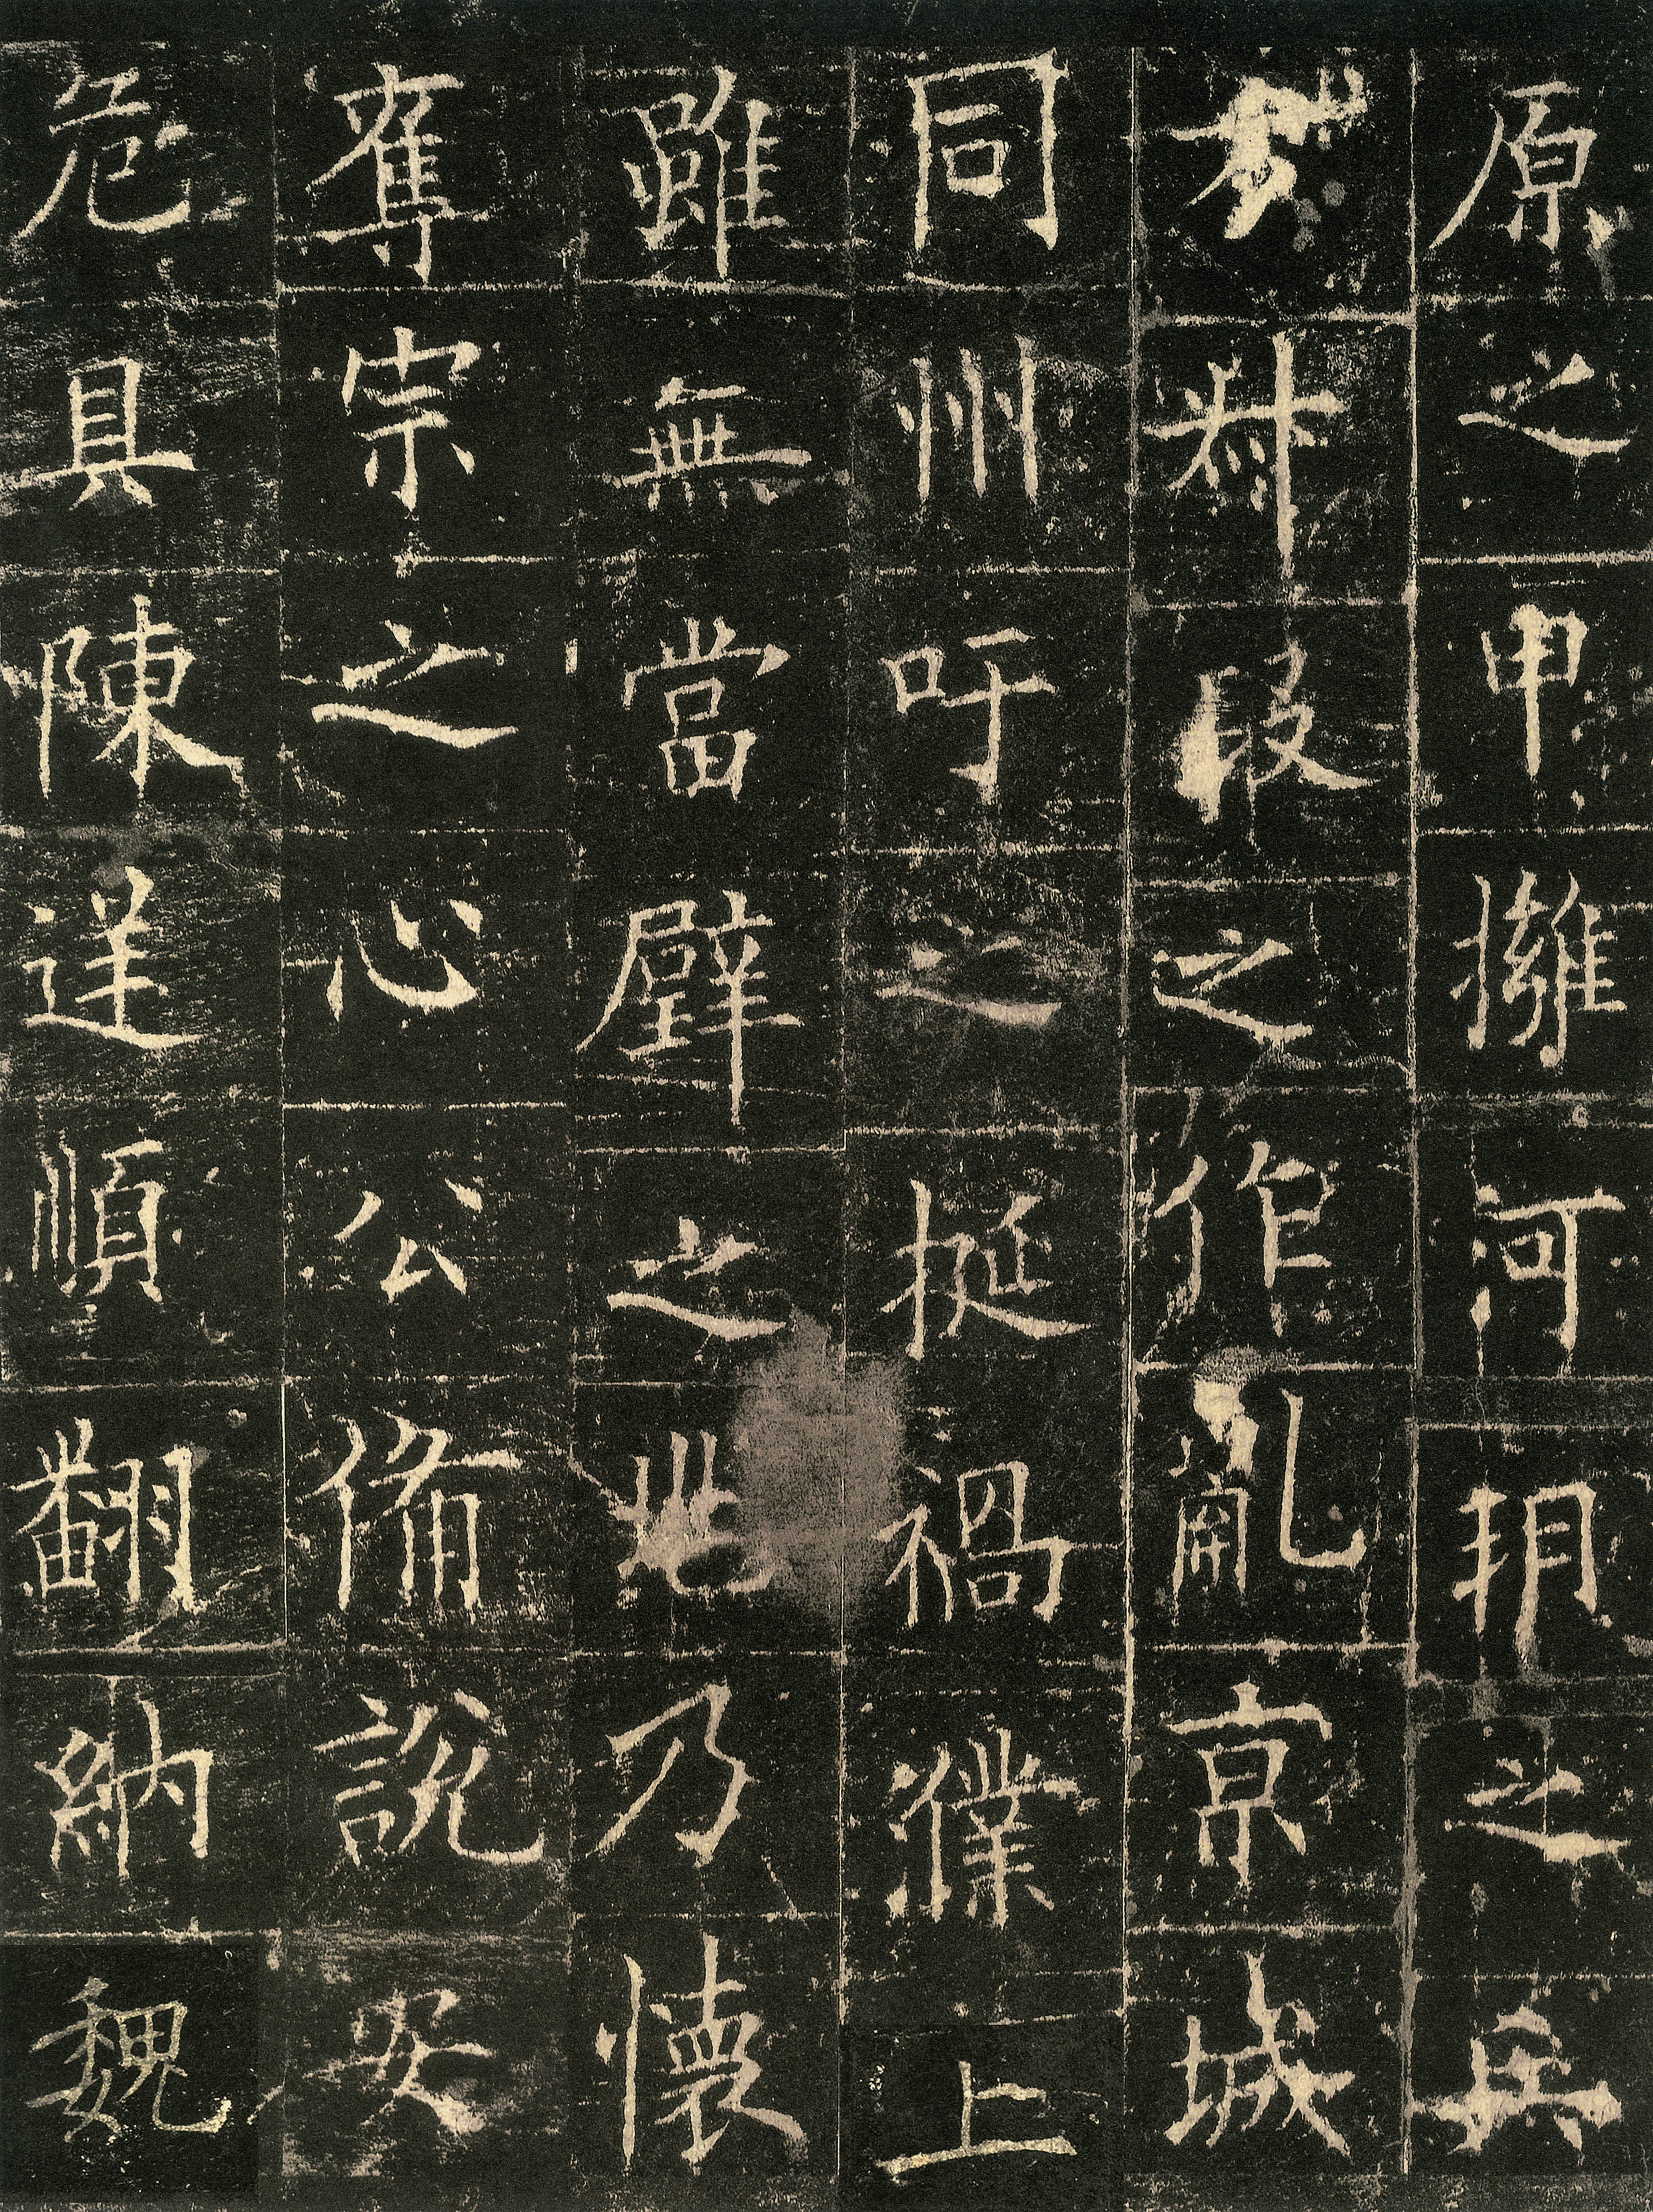 原之甲擁河朔之兵
方叔段之作亂京城
同州吁之挺禍濮上
雖無當璧之兆乃懷
奪宗之心公俻說安
危具陳逆順翻納魏